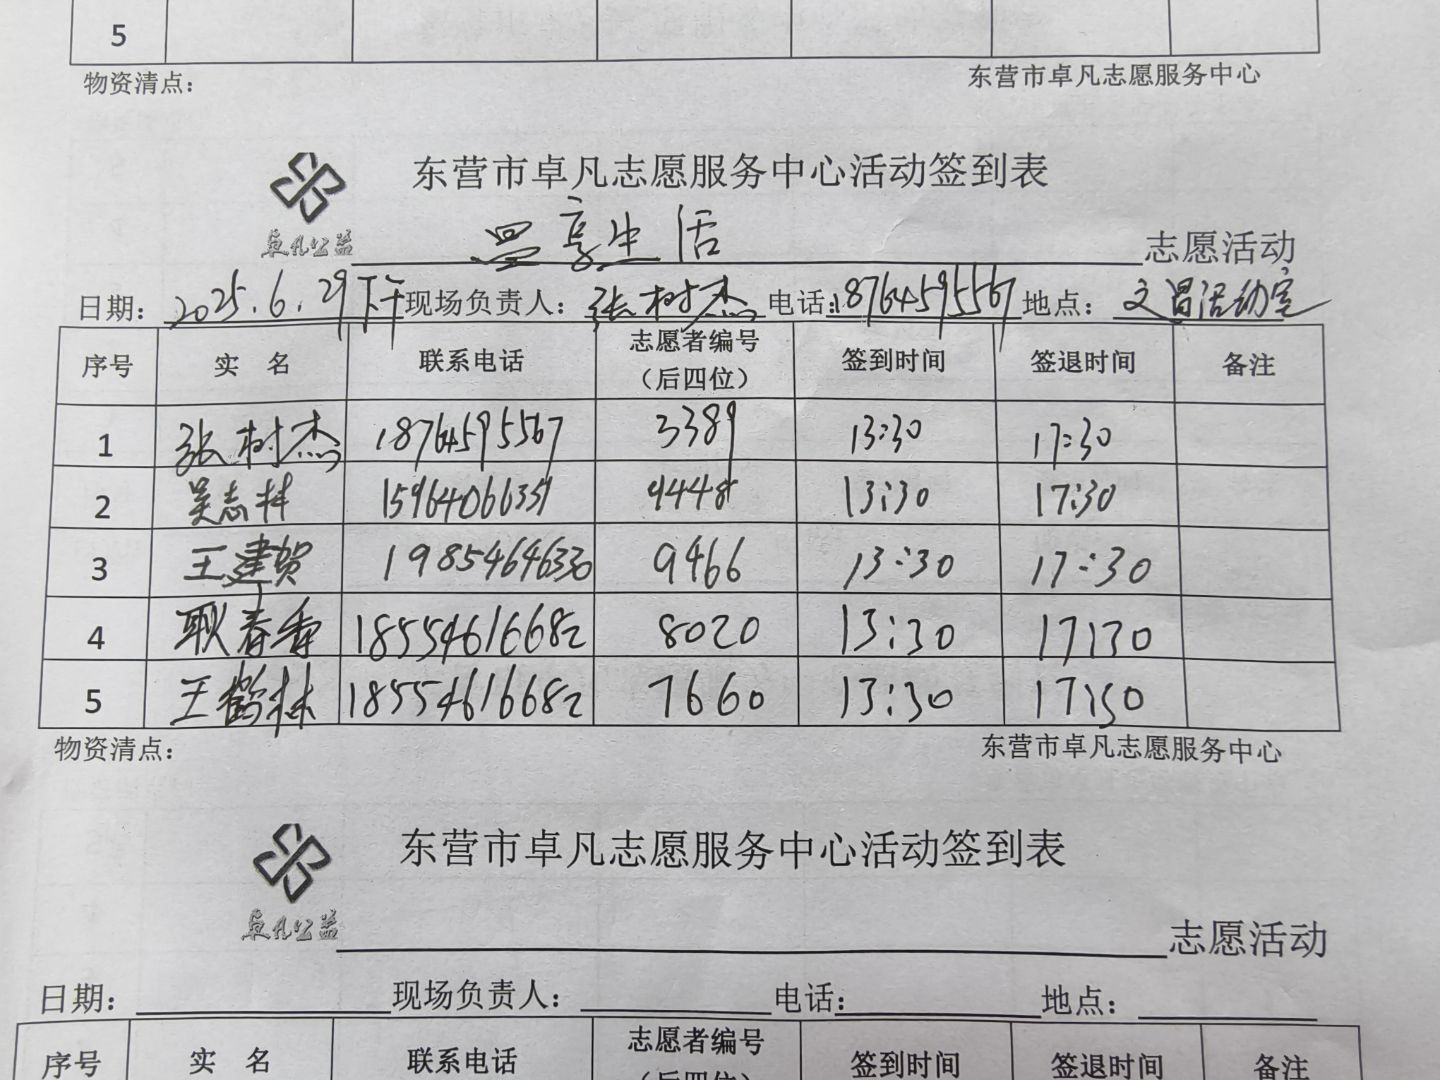 5
物资清点： 东营市卓凡志愿服务中心
东营市卓凡志愿服务中心活动签到表
卓凡公益 享生活 志愿活动
日期： 2025.6.29下午 现场负责人： 张树杰 电话： 18764595567 地点： 文昌活动室
序号 实 名 联系电话 志愿者编号（后四位） 签到时间 签退时间 备注
1 张树杰 18764595567 3389 13:30 17:30
2 吴志林 15964066351 9448 13:30 17:30
3 王建贺 19854646330 9466 13:30 17:30
4 耿春香 18554616682 8020 13:30 17:30
5 王鹤林 18554616682 7660 13:30 17:30
物资清点： 东营市卓凡志愿服务中心
东营市卓凡志愿服务中心活动签到表
卓凡公益 志愿活动
日期： 现场负责人： 电话： 地点：
序号 实 名 联系电话 志愿者编号 签到时间 签退时间 备注
（后四位）